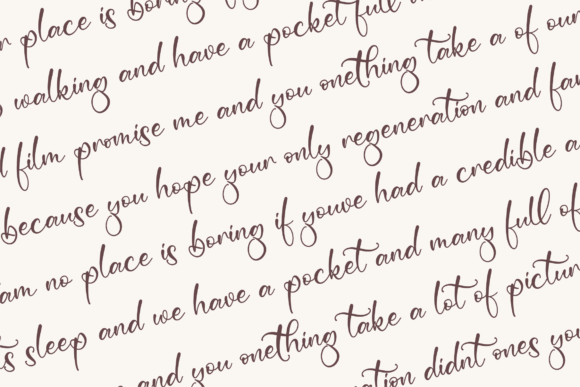 place is boring
walking and have a pocket full
film promise me and you onething take a of our
because you hope your only regeneration and
am no place is boring if youve had a credible a
sleep and we have a pocket and many full of
and you onething take a lot of
didnt ones